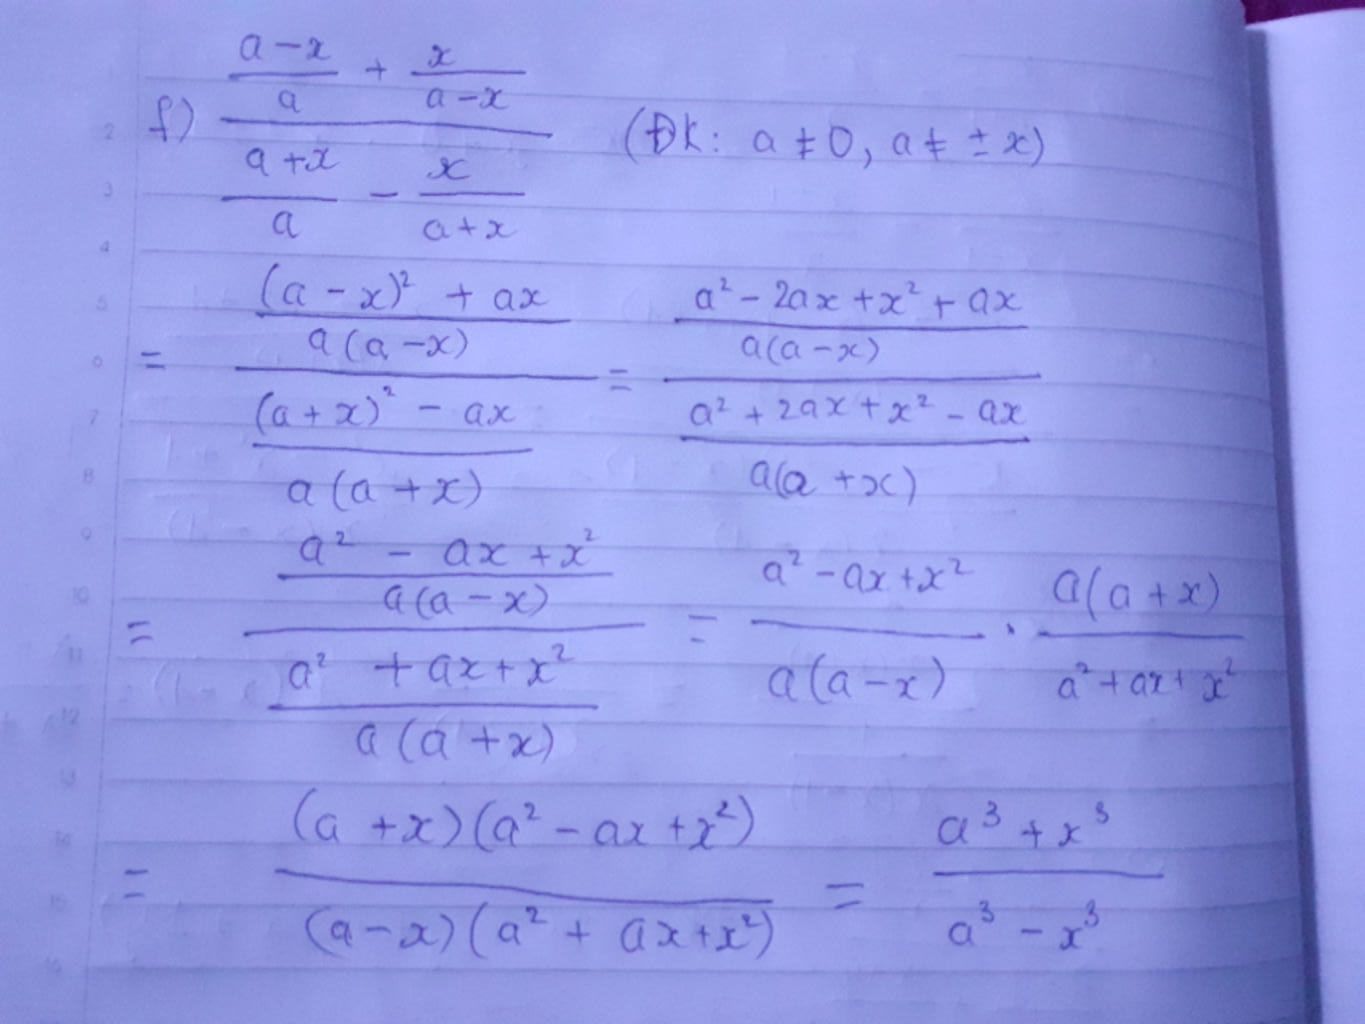 f) \frac{\frac{a-x}{a} + \frac{x}{a-x}}{\frac{a+x}{a} - \frac{x}{a+x}} (ĐK: a ≠ 0, a ≠ ± x)
= \frac{\frac{(a-x)^2 + ax}{a(a-x)}}{\frac{(a+x)^2 - ax}{a(a+x)}} = \frac{\frac{a^2 - 2ax + x^2 + ax}{a(a-x)}}{\frac{a^2 + 2ax + x^2 - ax}{a(a+x)}}
= \frac{\frac{a^2 - ax + x^2}{a(a-x)}}{\frac{a^2 + ax + x^2}{a(a+x)}} = \frac{a^2 - ax + x^2}{a(a-x)} \cdot \frac{a(a+x)}{a^2 + ax + x^2}
= \frac{(a+x)(a^2 - ax + x^2)}{(a-x)(a^2 + ax + x^2)} = \frac{a^3 + x^3}{a^3 - x^3}